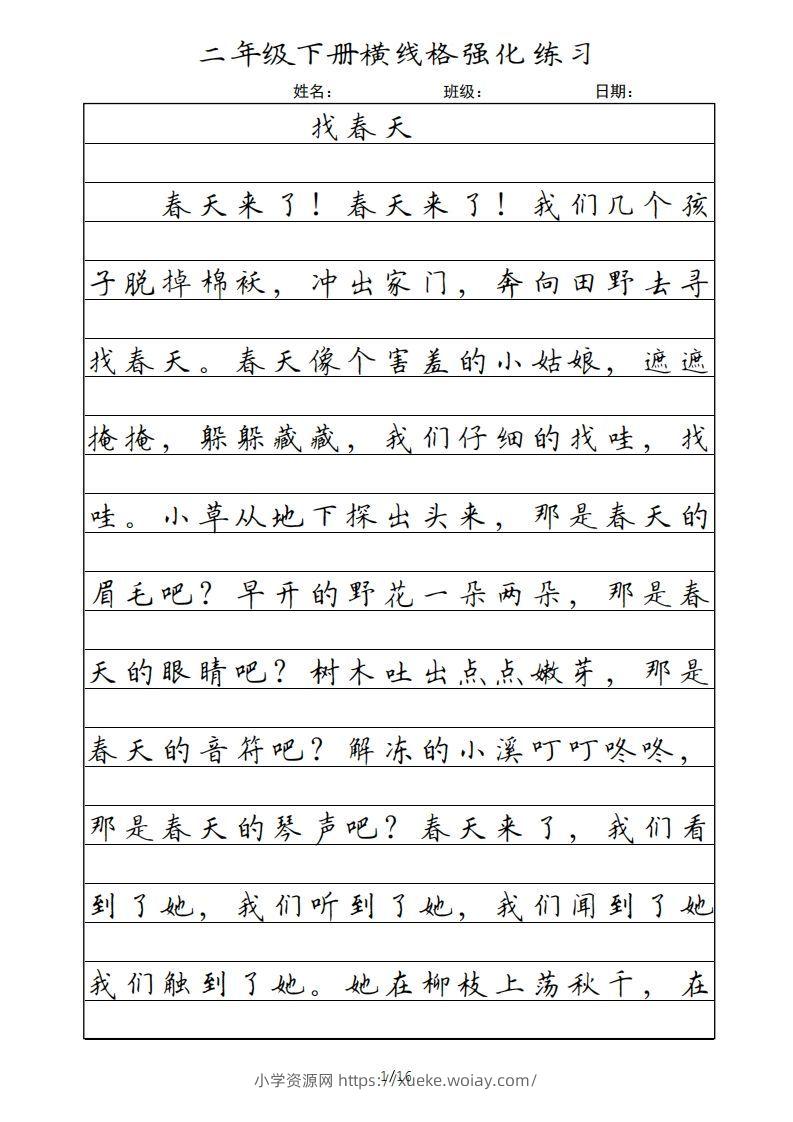 二年级下册横线格强化练习
姓名： 班级： 日期：
找春天
春天来了！春天来了！我们几个孩
子脱掉棉袄，冲出家门，奔向田野去寻
找春天。春天像个害羞的小姑娘，遮遮
掩掩，躲躲藏藏，我们仔细的找哇，找
哇。小草从地下探出头来，那是春天的
眉毛吧？早开的野花一朵两朵，那是春
天的眼睛吧？树木吐出点点嫩芽，那是
春天的音符吧？解冻的小溪叮叮咚咚，
那是春天的琴声吧？春天来了，我们看
到了她，我们听到了她，我们闻到了她
我们触到了她。她在柳枝上荡秋千，在
1/16
小学资源网 https://xueke.woiay.com/